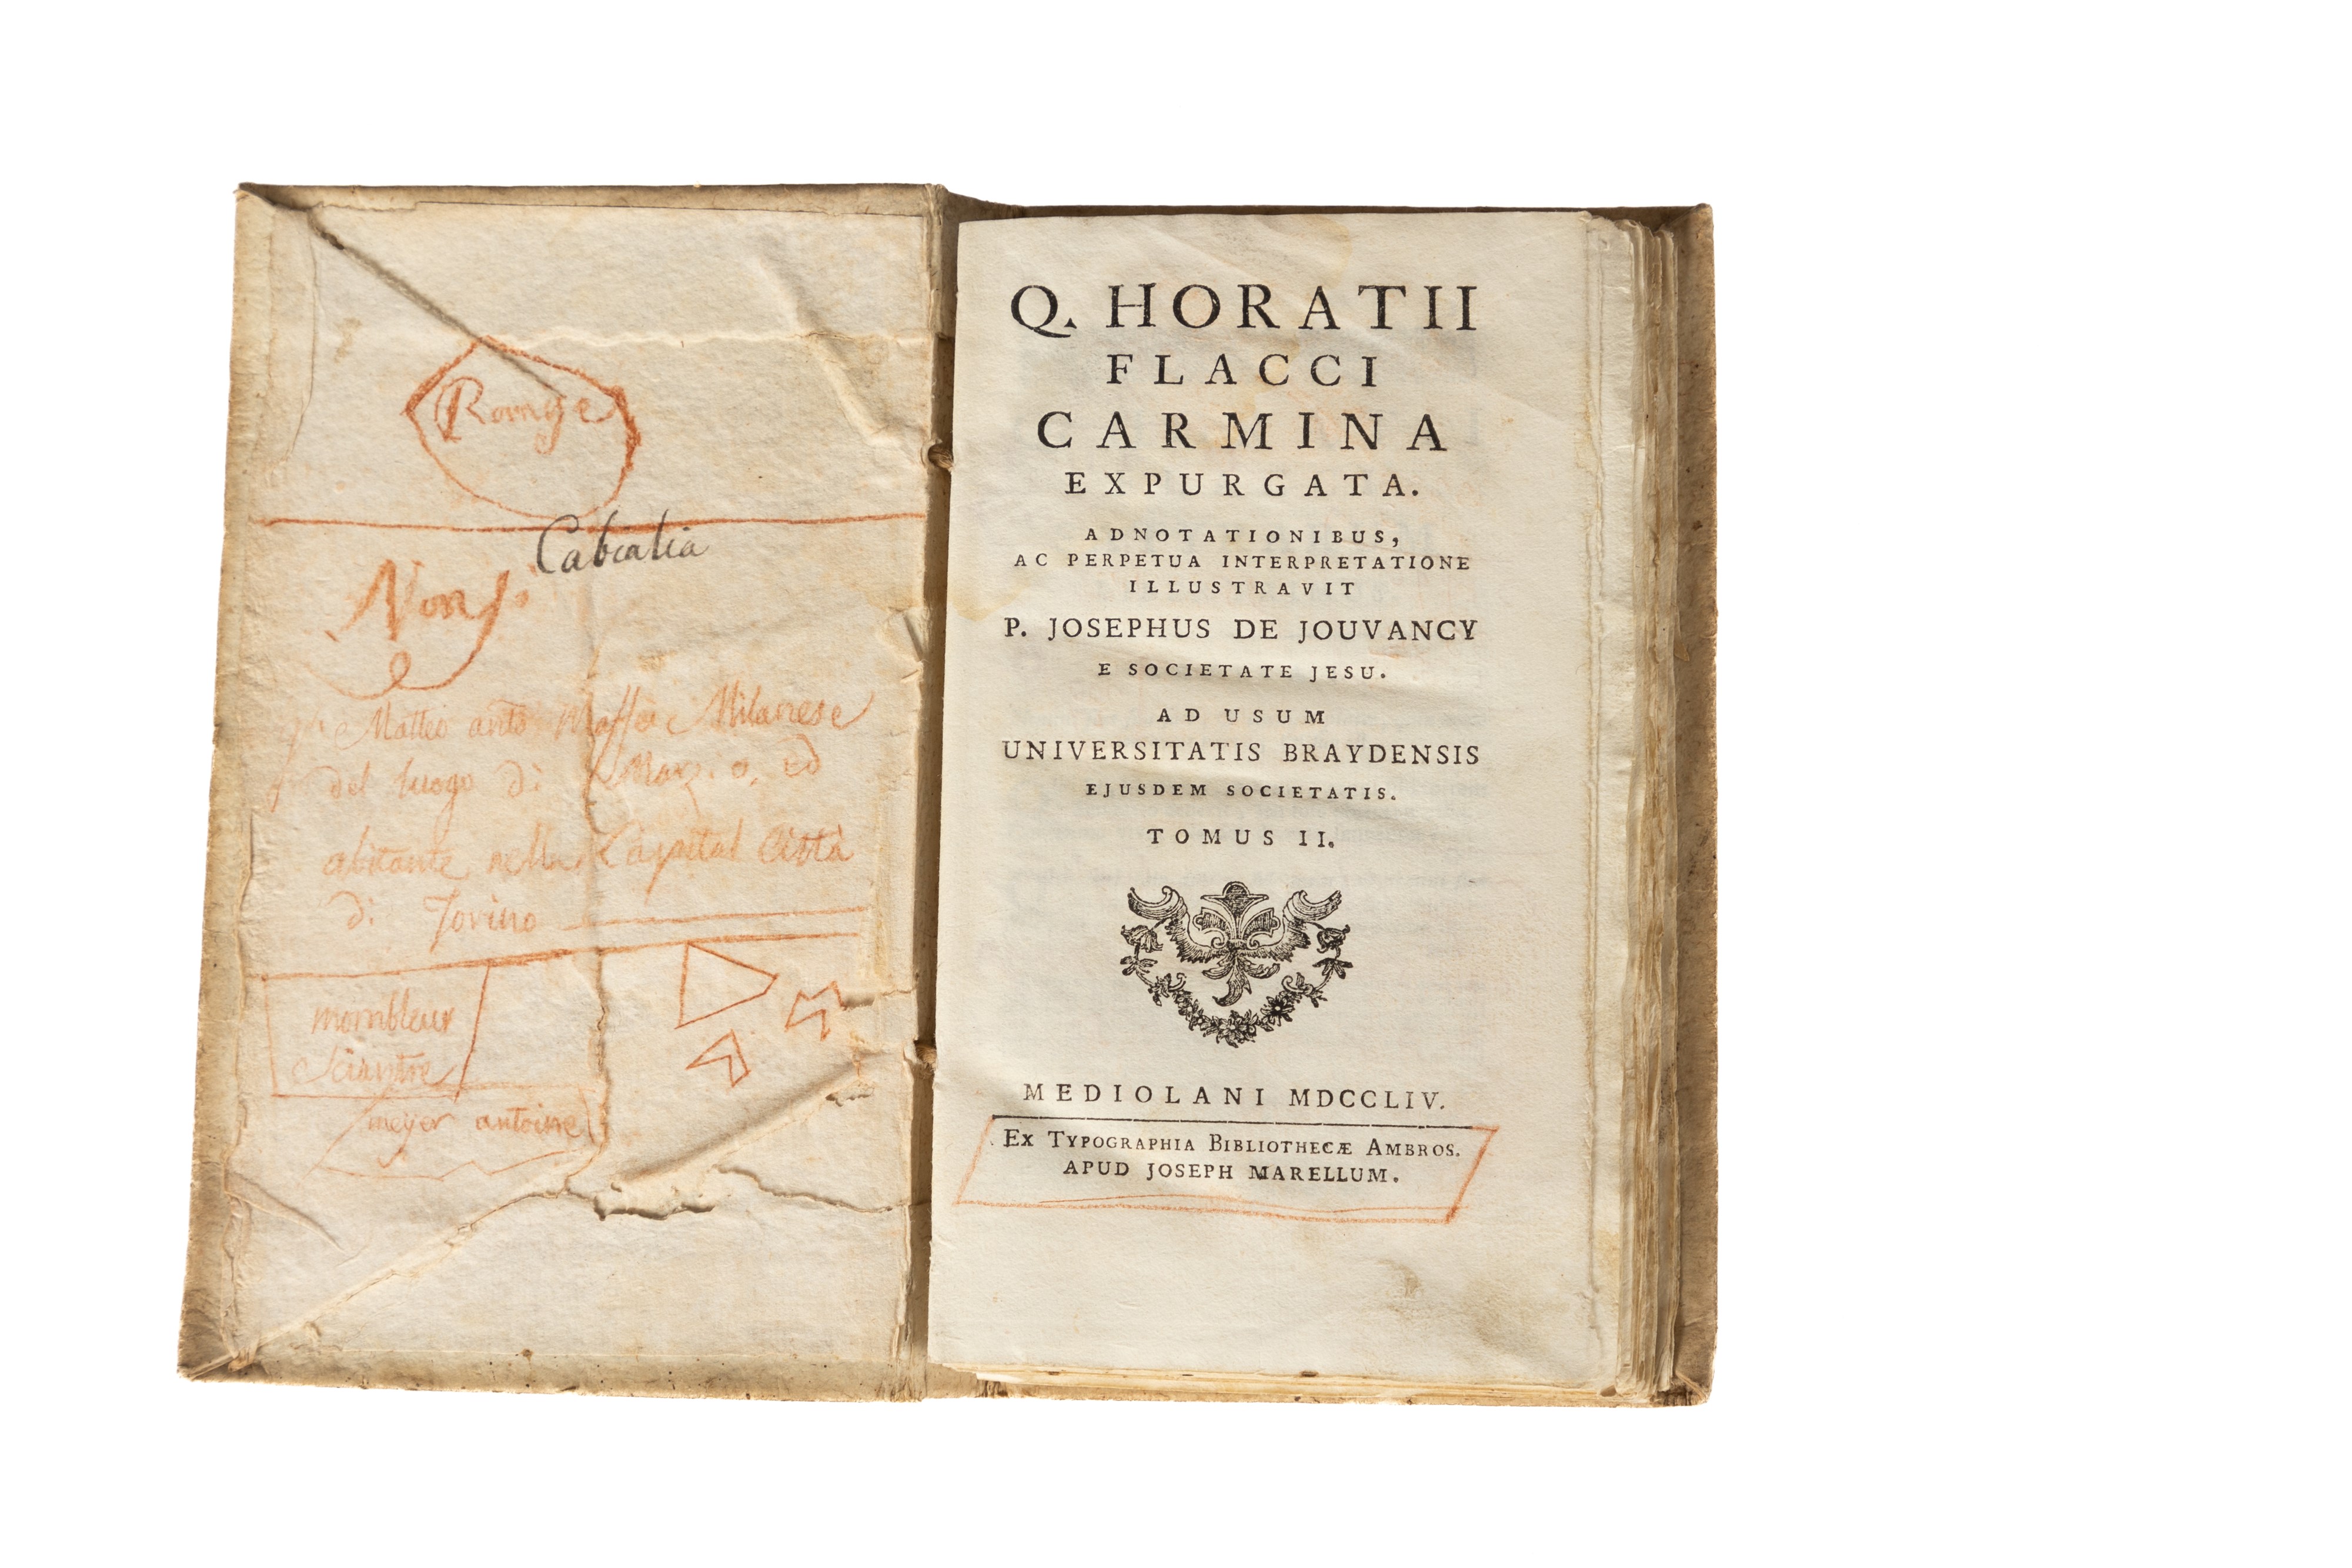 Romge
Cabialia
Non
Matteo anto Maffei Milanese
del luogo di Marzio, ed
abitante nella Capital Città
di Torino
mombleur
Sciantre
meyer antoine
Q. HORATII
FLACCI
CARMINA
EXPURGATA.
ADNOTATIONIBUS,
AC PERPETUA INTERPRETATIONE
ILLUSTRAVIT
P. JOSEPHUS DE JOUVANCY
E SOCIETATE JESU.
AD USUM
UNIVERSITATIS BRAYDENSIS
EJUSDEM SOCIETATIS.
TOMUS II.
MEDIOLANI MDCCLIV.
Ex Typographia Bibliothecæ Ambros.
APUD JOSEPH MARELLUM.